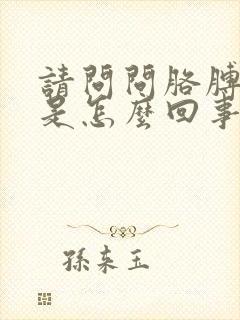 請問問胳膊
是怎麼回事
孫來玉